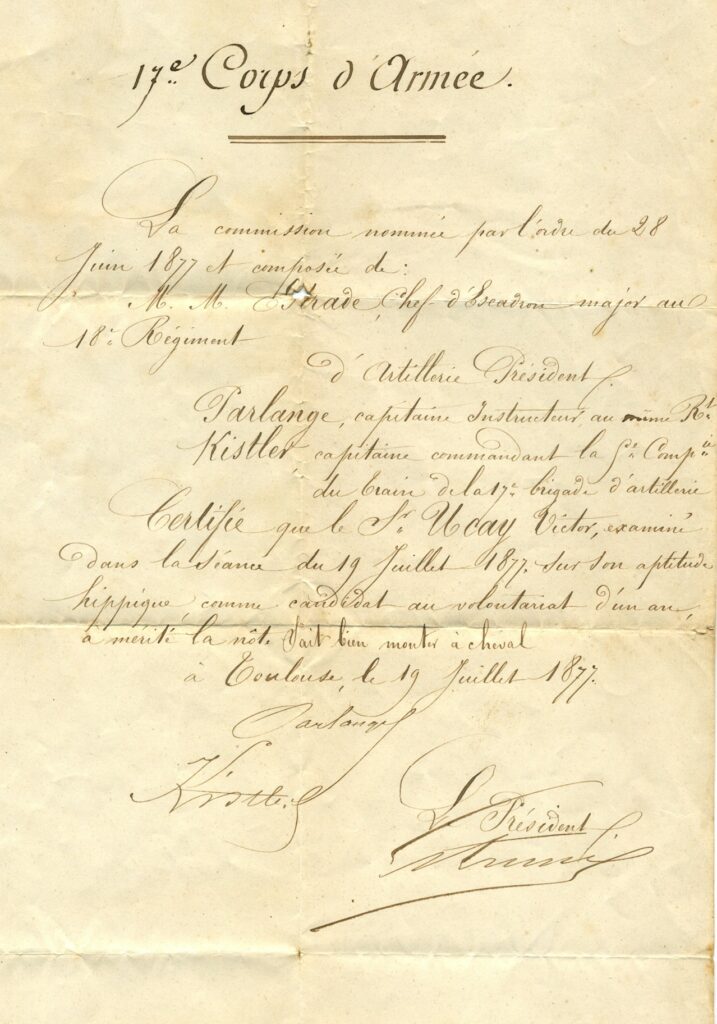 17e Corps d'Armée.
La commission nommée par l'ordre du 28
Juin 1877 et composée de:
M. M. Chef d'Escadron major au
18e Régiment
d'Artillerie Président
Parlange, capitaine Instructeur au même Rt
Kistler, capitaine commandant la Compie
du train de la 17e brigade d'artillerie
Certifie que le Sr Ucay Victor, examiné
dans la séance du 19 Juillet 1877 sur son aptitude
hippique, comme candidat au volontariat d'un an,
a mérité la note Sait bien monter à cheval
à Toulouse, le 19 Juillet 1877.
Parlange
Kistler
Le Président